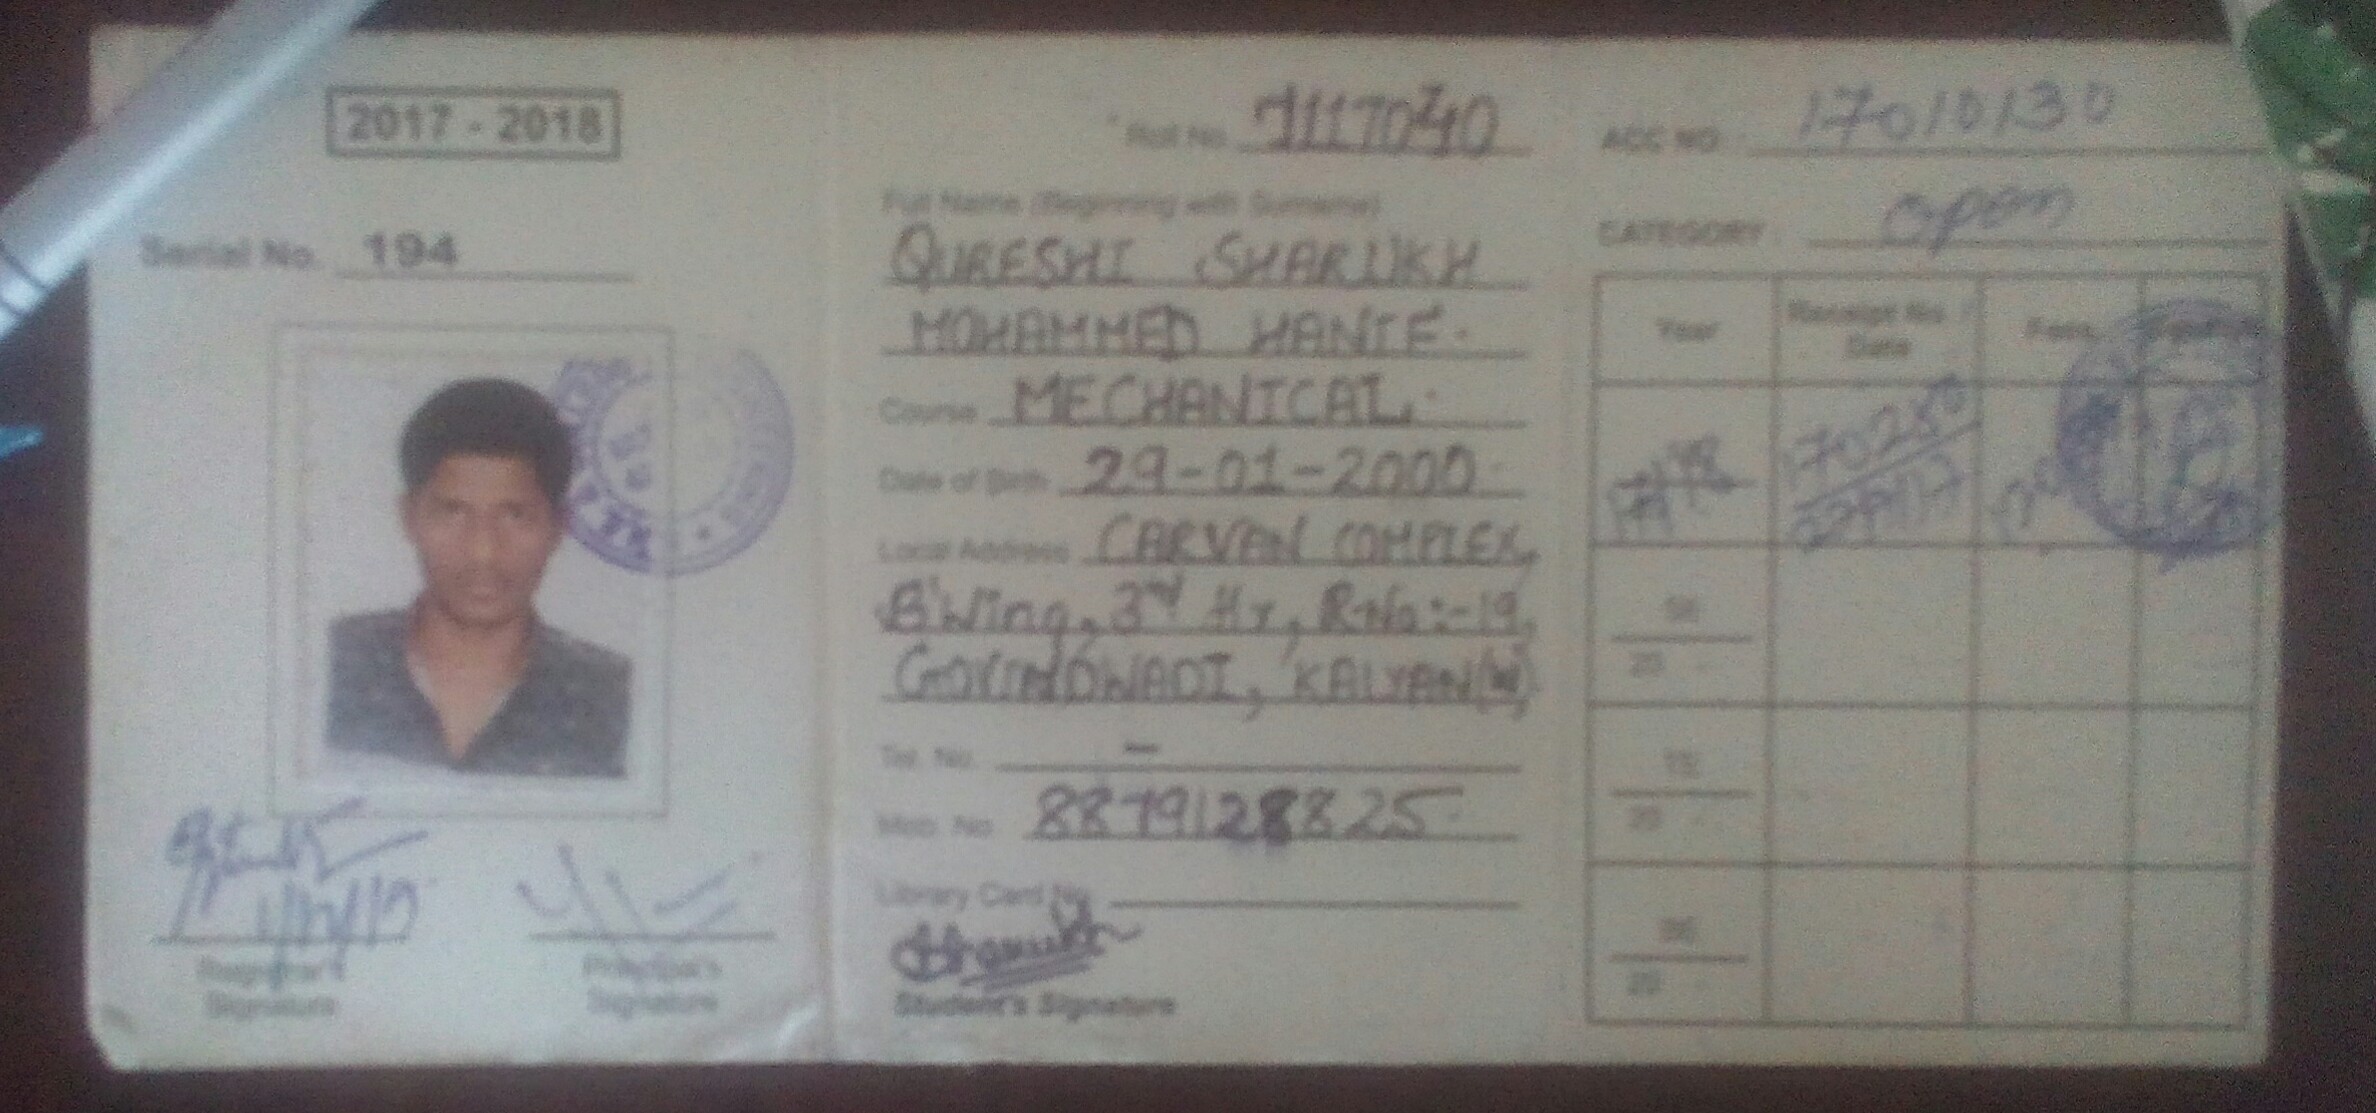 2017 - 2018
Serial No. 194
Registrar's
Signature
Principal's
Signature
Roll No. 7117040
Full Name (Beginning with Surname)
QURESHI SHARUKH
MOHAMMED HANIF.
Course MECHANICAL.
Date of Birth 29-01-2000
Local Address CARVAN COMPLEX,
B'Wing, 3rd Flr, R.No:-19,
GOVINDWADI, KALYAN(W)
Tel. No. -
Mob. No. 8879128825.
Library Card No.
Student's Signature
ACC NO : 17010130
CATEGORY : open
Year Receipt No / Date Fees
17/18 170280
20
20
20